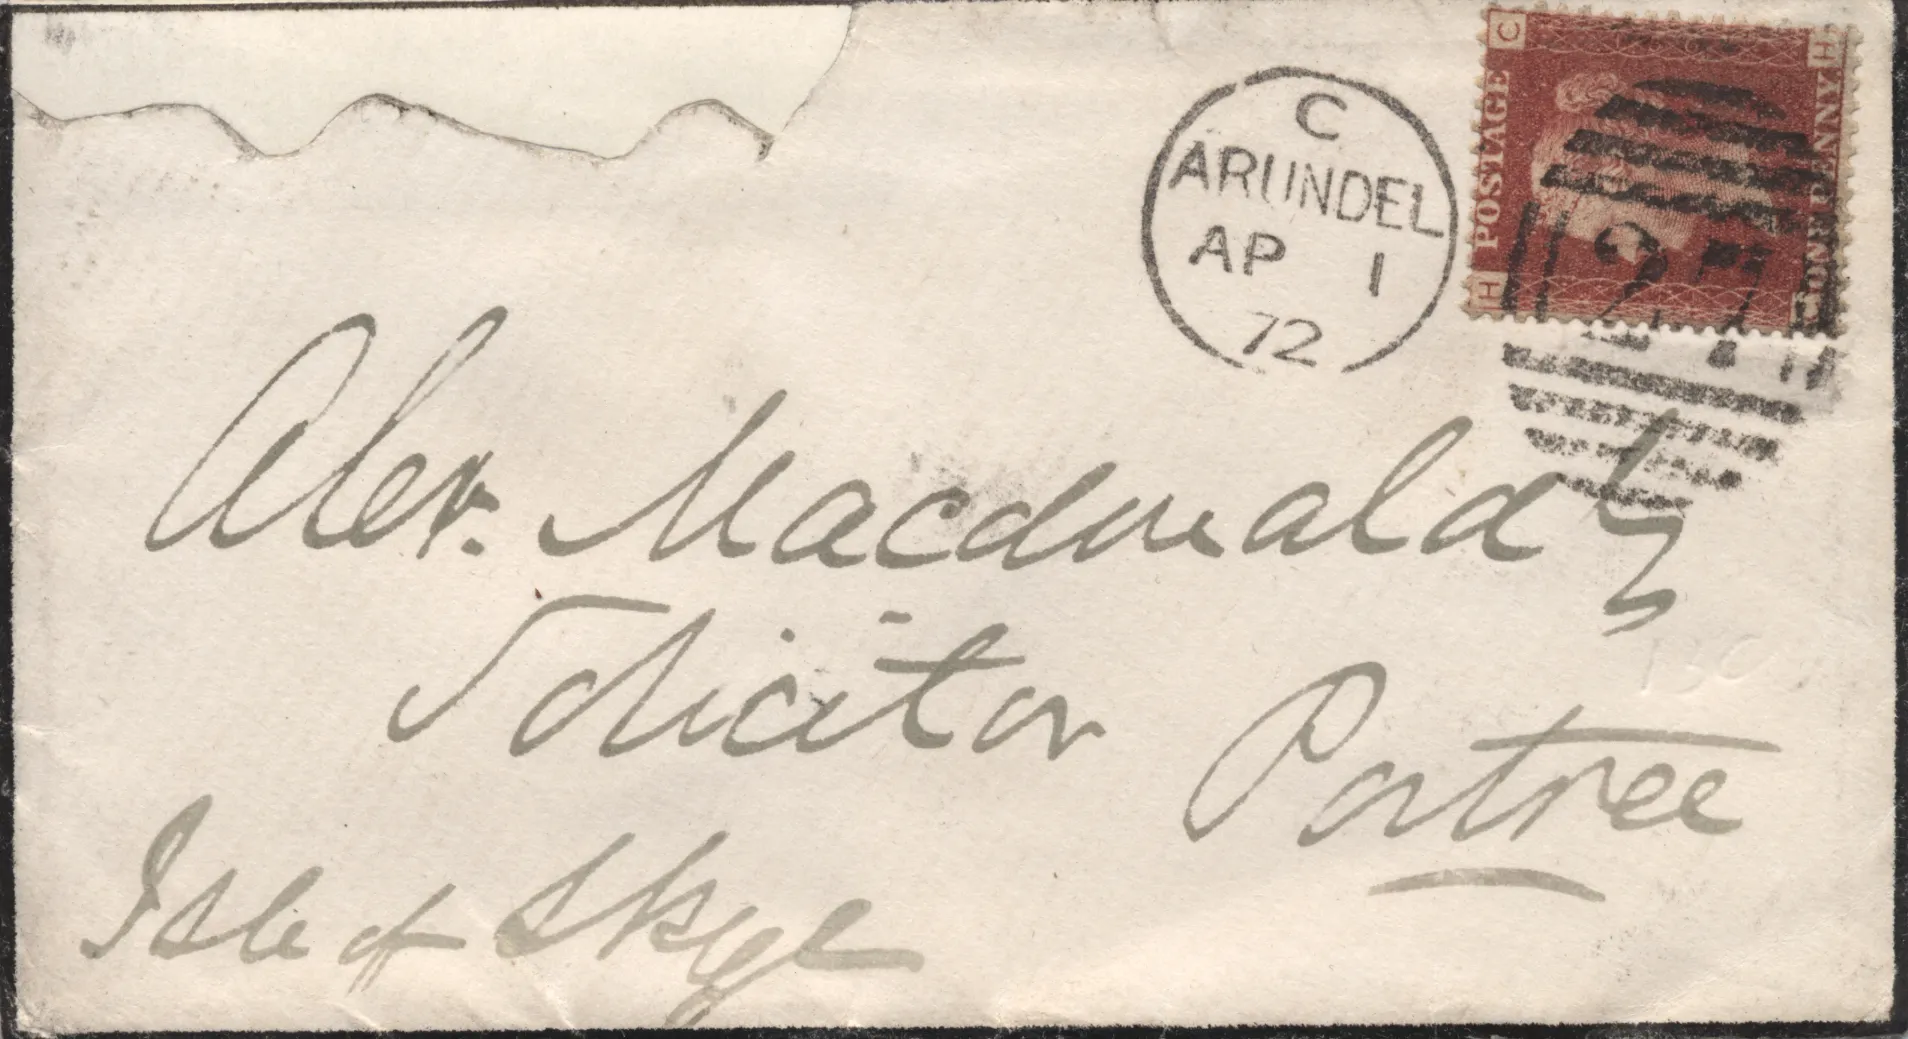 C
ARUNDEL
AP 1
72
C H
POSTAGE
ONE PENNY
H C
27
Alexr. Macdonald
Solicitor
Portree
Isle of Skye